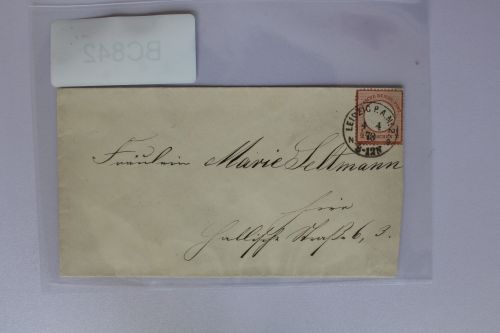 BC842
LEIPZIG P.A. No 9
4
8-12N
Fräulein Marie Seltmann
hier
Hallische Straße 6, 3.